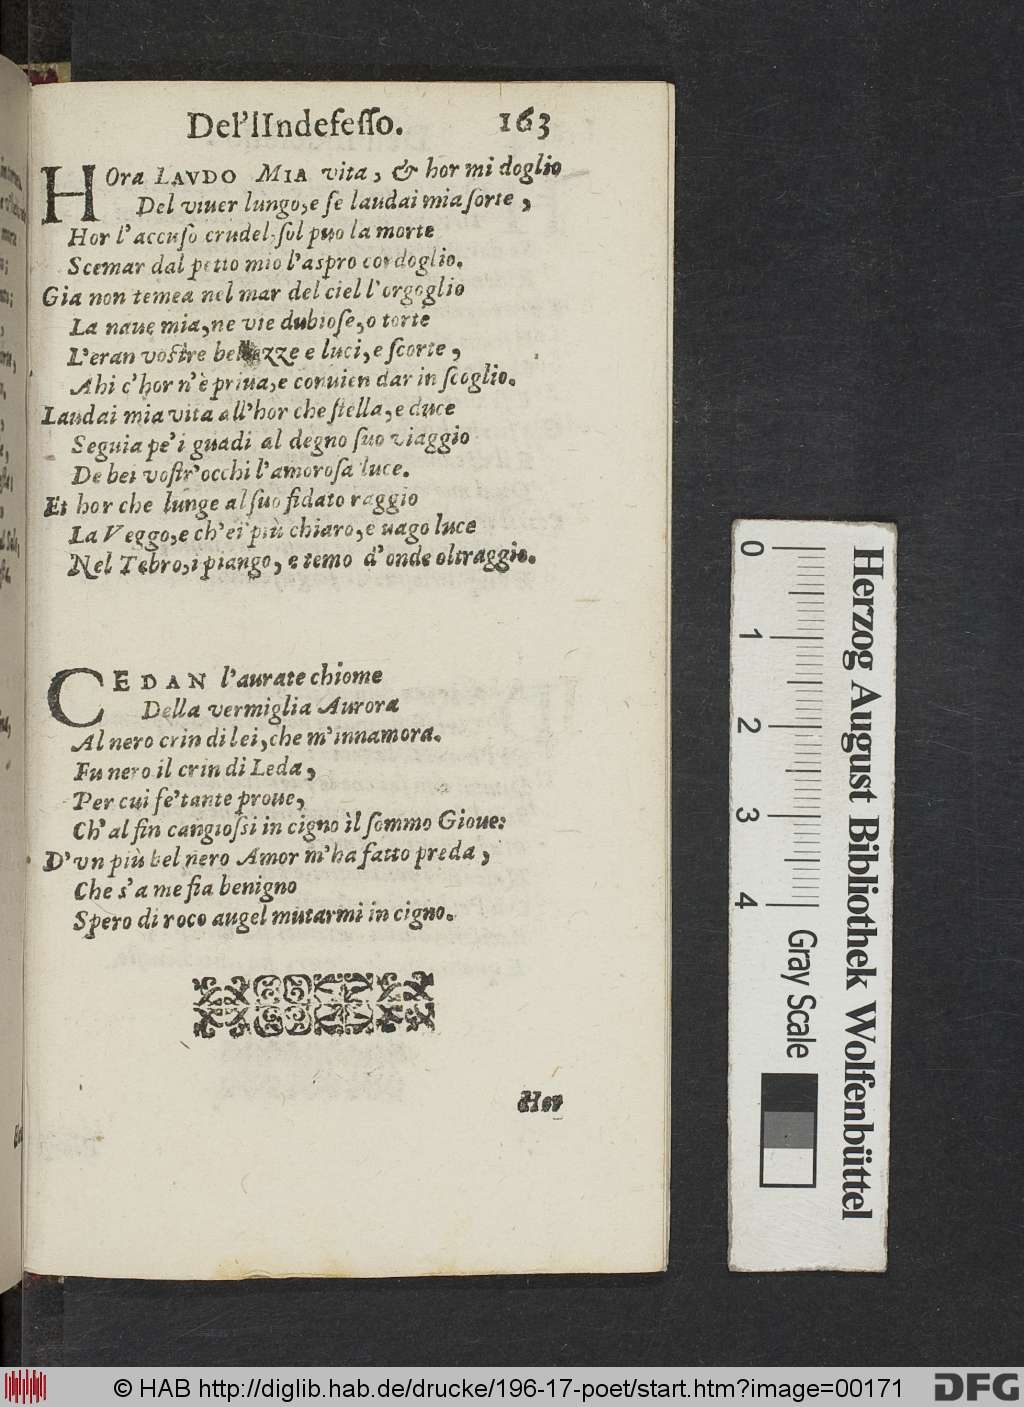 Del'lIndefeſſo. 163
HOra LAVDO MIA vita, & hor mi doglio
Del viuer lungo,e ſe laudai mia ſorte,
Hor l'accuſo crudel.ſol puo la morte
Scemar dal petto mio l'aspro cordoglio.
Gia non temea nel mar del ciel l'orgoglio
La naue mia,ne vie dubioſe,o torte
L'eran vostre bellezze e luci,e ſcorte,
Ahi c'hor n'è priua,e conuien dar in ſcoglio.
Laudai mia vita all'hor che ſtella,e duce
Seguia pe'i guadi al degno ſuo viaggio
De bei voſtr'occhi l'amoroſa luce.
Et hor che lunge al ſuo fidato raggio
La Veggo,e ch'ei più chiaro,e uago luce
Nel Tebro,i piango, e temo d'onde oltraggio.
CEDAN l'aurate chiome
Della vermiglia Aurora
Al nero crin di lei,che m'innamora.
Fu nero il crin di Leda,
Per cui fe'tante proue,
Ch'al fin cangioſsi in cigno il ſommo Gioue:
D'vn più bel nero Amor m'ha fatto preda,
Che s'a me fia benigno
Spero di roco augel mutarmi in cigno.
Hor
0 1 2 3 4
Gray Scale
Herzog August Bibliothek Wolfenbüttel
© HAB http://diglib.hab.de/drucke/196-17-poet/start.htm?image=00171
DFG